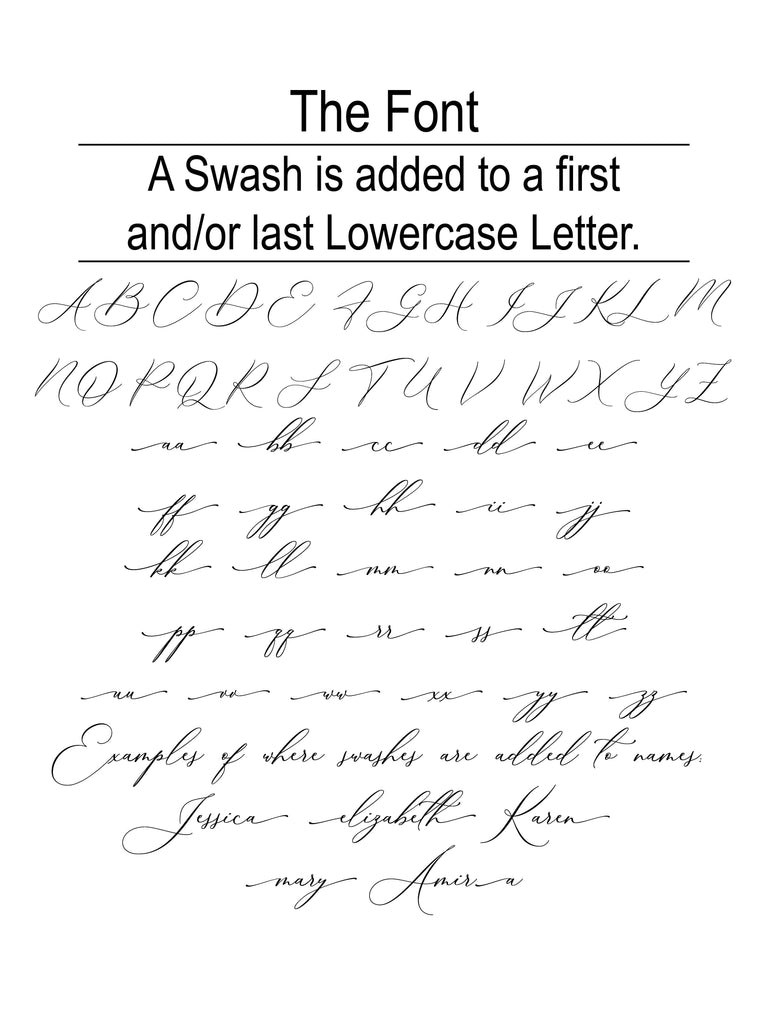 The Font
A Swash is added to a first
and/or last Lowercase Letter.
A B C D E F G H I J K L M
N O P Q R S T U V W X Y Z
aa bb cc dd ee
ff gg hh ii jj
kk ll mm nn oo
pp qq rr ss tt
uu vv ww xx yy zz
Examples of where swashes are added to names:
Jessica elizabeth Karen
mary Amir a